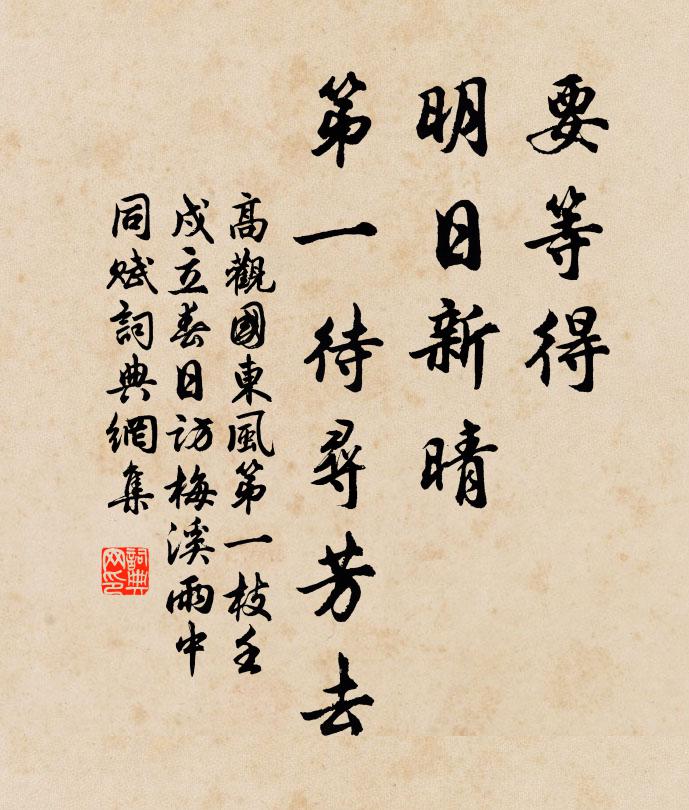 要等得
明日新晴
第一待尋芳去
高觀國東風第一枝壬
戌立春日訪梅溪雨中
同賦詞典網集
詞典网印